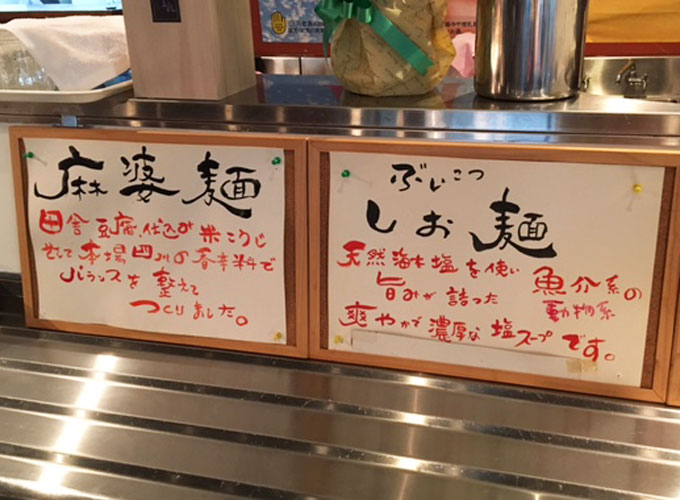 麻婆麺
田舎豆腐、仕込み米こうじ
そして本場四川の香辛料で
バランスを整えて
つくりました。
ぶいこつ
しお麺
天然海水塩を使い
魚介系の
動物系
旨みが詰った
爽やかで濃厚な塩スープです。